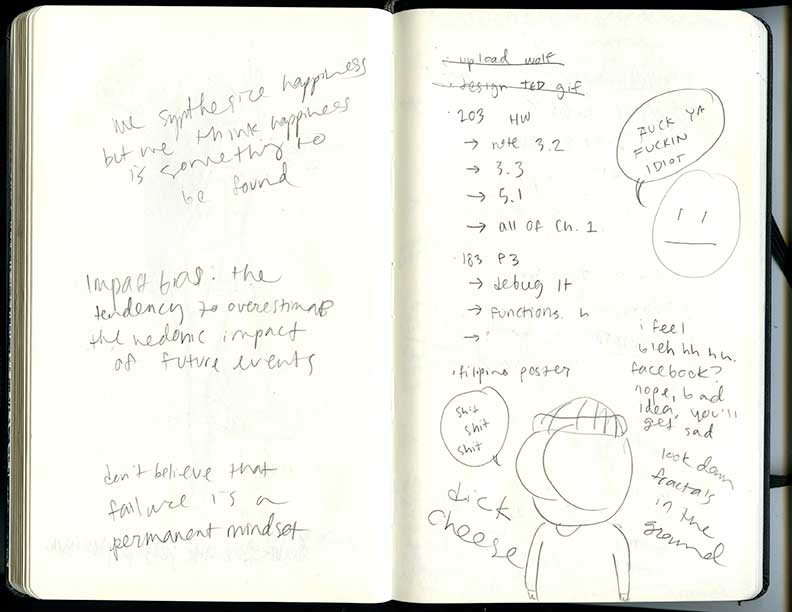 we synthesize happiness
but we think happiness
is something to
be found
Impact bias: the
tendency to overestimate
the hedonic impact
of future events
don't believe that
failure is a
permanent mindset
· upload wolf
· design TED gif
· 203 HW
→ note 3.2
→ 3.3
→ 5.1
→ all of Ch. 1
· 183 P3
→ debug it
→ functions. h
→
· filipino poster
FUCK YA
FUCKIN
IDIOT
i feel
bleh hh hh.
facebook?
nope, bad
idea, you'll
get sad
shit
shit
shit
dick
cheese
look down
fractals
in the
ground